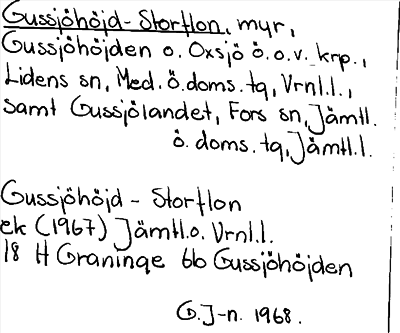 Gussjöhöjd-Storflon, myr,
Gussjöhöjden o. Oxsjö ö.o.v. krp.,
Lidens sn, Med. ö. doms. tg, Vrnl.l.,
samt Gussjölandet, Fors sn, Jämtl.
ö. doms. tg, Jämtl.l.
Gussjöhöjd - Storflon
ek (1967) Jämtl.o. Vrnl.l.
18 H Graninge 6b Gussjöhöjden
G.J-n. 1968.